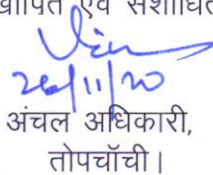 एवं संशोधित
26/11/20
अंचल अधिकारी,
तोपचाँची।